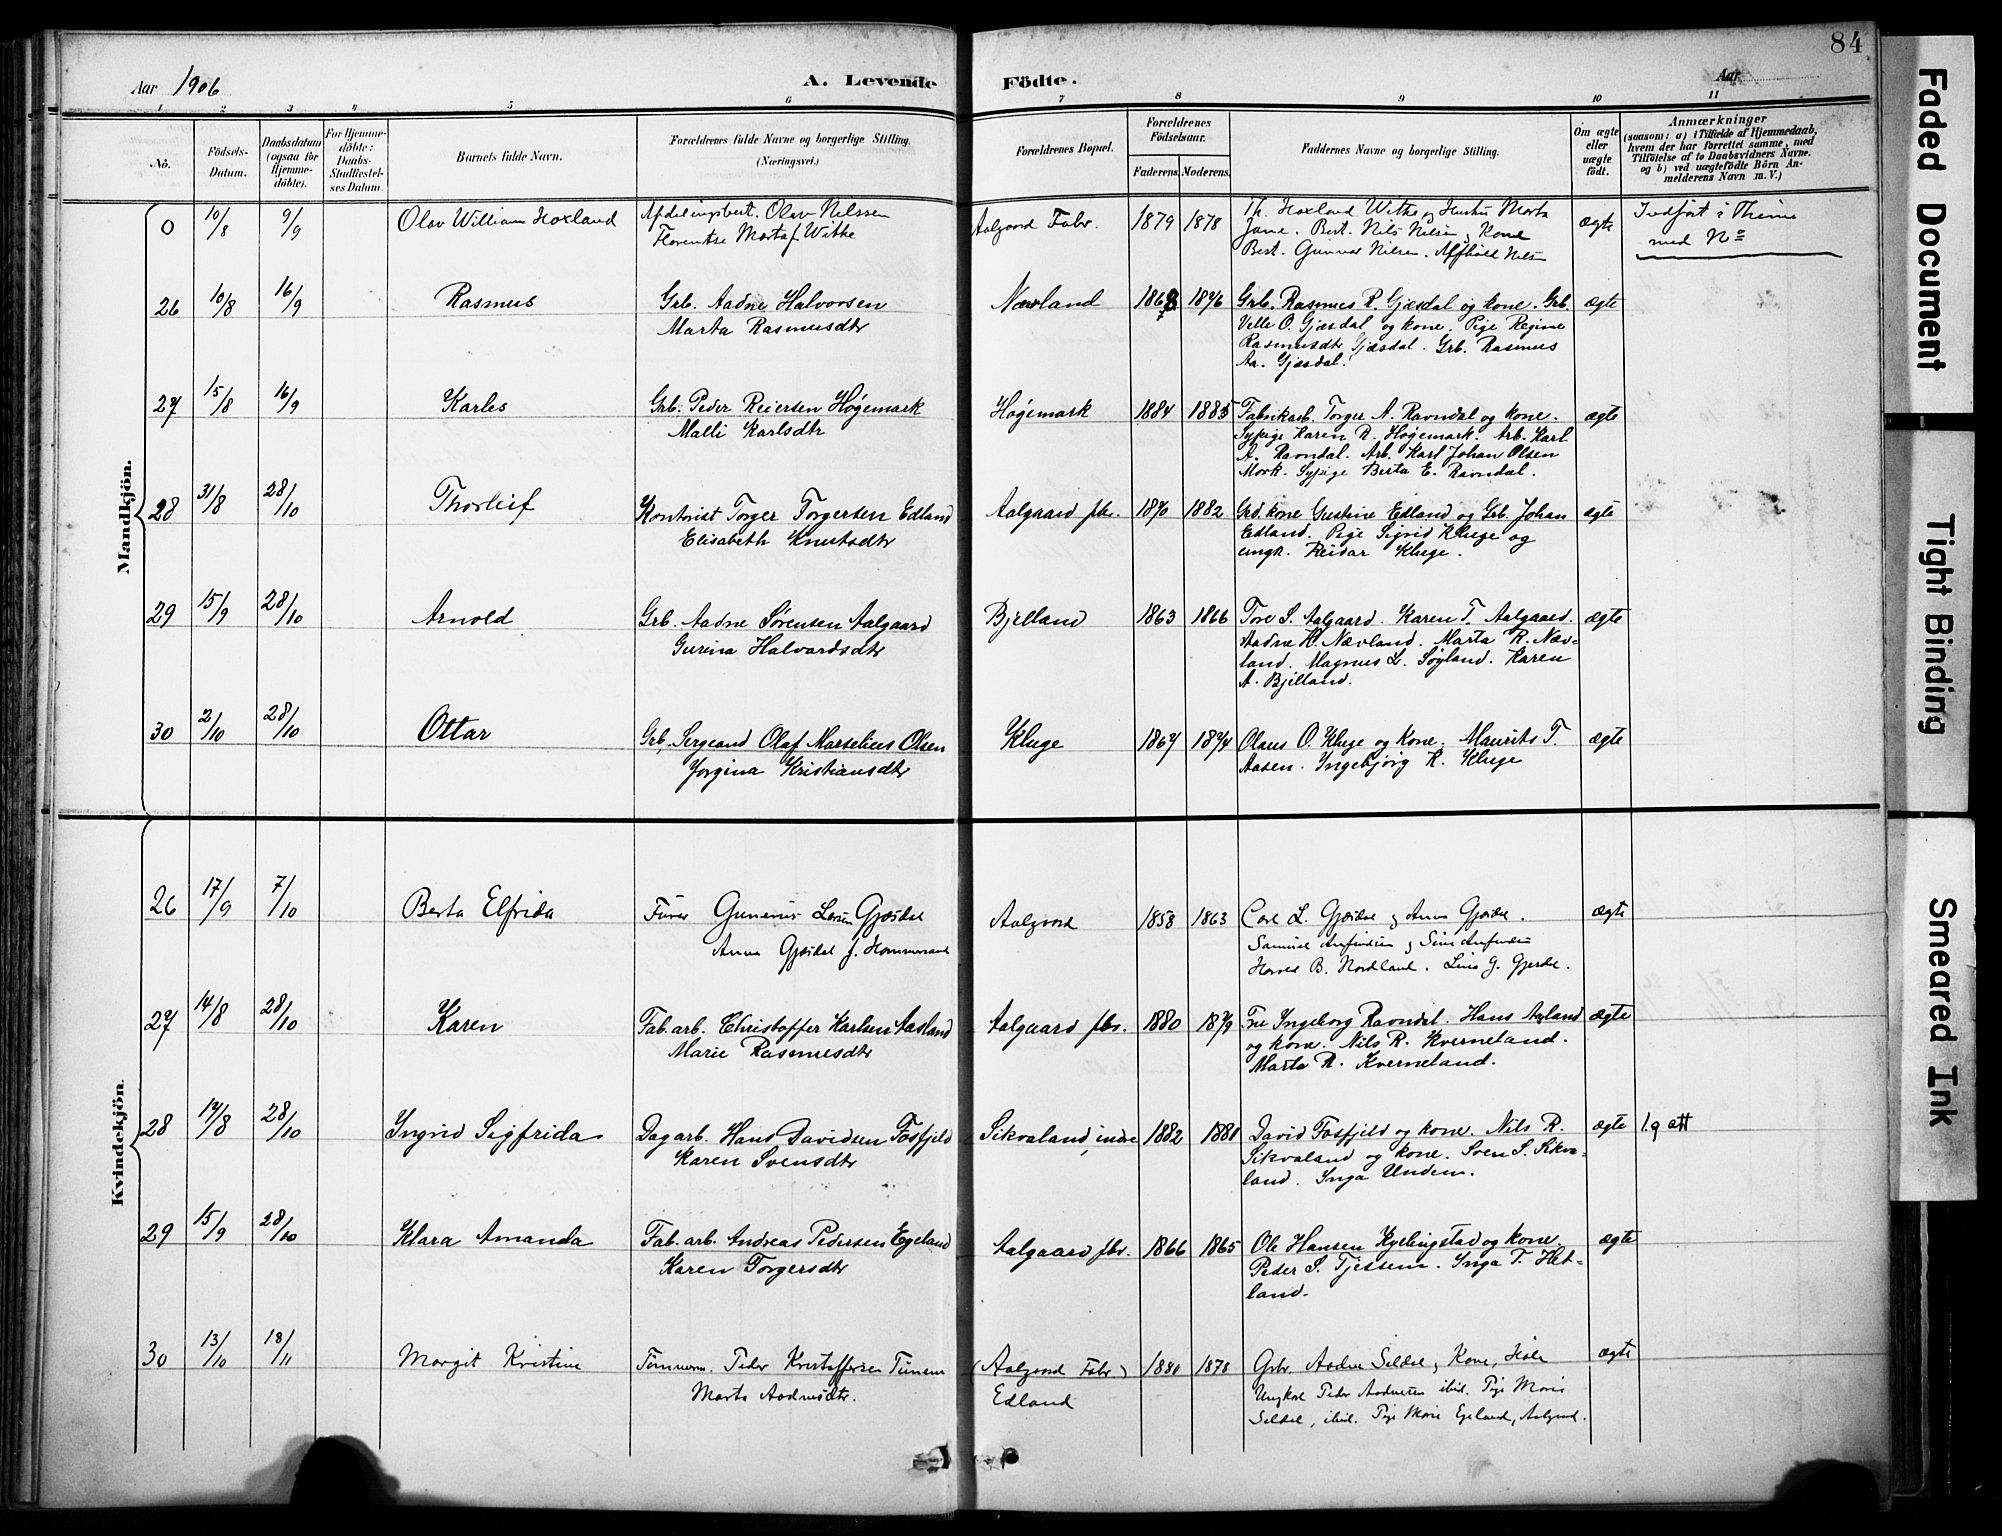 84
Aar 1906
A. Levende Födte.
Aar
1 2 3 4 5 6 7 8 9 10 11
No.
Födsels-Datum.
Daabsdatum (ogsaa for Hjemme-döbte).
For Hjemme-döbte: Daabs-Stadfæstel-ses Datum.
Barnets fulde Navn.
Forældrenes fulde Navne og borgerlige Stilling. (Næringsvei.)
Forældrenes Bopæl.
Forældrenes Födselsaar.
Faderens. Moderens.
Faddernes Navne og borgerlige Stilling.
Om ægte eller uægte födt.
Anmærkninger
(saasom: a) i Tilfælde af Hjemmedaab,
hvem der har forrettet samme, med
Tilföielse af to Daabsvidners Navne.
og b) ved uægtefödte Börn An-
melderens Navn m. V.)
Mandkjön.
0 10/8 9/9 Olav William Hoxland Afdelingsbest. Olav Nilssen Aalgaard Fabr. 1879 1878 Th. Hoxland Witke og Hustru Marta ægte Indført i Thime
Florentse Marta f. Witke
Jane. Best. Nils Nilsen og Kone
med No
Best. Gunnar Nilsen.
26 10/8 16/9 Rasmus Grb. Aadne Halvorsen Nævland 1868 1876 Grb. Rasmus R. Gjæsdal og kone. Grb. ægte
Marta Rasmusdtr
Velle O. Gjæsdal og kone. Pige Regine
Rasmusdtr Gjæsdal. Grb. Rasmus
Aa. Gjæsdal.
27 15/8 16/9 Karles Grb. Peder Reiersen Høgemark Høgemark 1884 1885 Fabrikarb. Torger A. Ravndal og kone. ægte
Malli Karlsdtr
Sypige Karen R. Høgemark. Arb. Karl
A. Ravndal. Arb. Karl Johan Olsen
Mork. Sypige Berta E. Ravndal.
28 31/8 28/10 Thorleif Kontorist Torger Torgersen Edland Aalgaard fbr. 1870 1882 Grd. kone Gustine Edland og Grb. Johan ægte
Elisabeth Knutsdtr
Edland. Pige Sigrid Kluge og
ungk. Reidar Kluge.
29 15/9 28/10 Arnold Grb. Aadne Sørensen Aalgaard Bjelland 1863 1866 Tore S. Aalgaard. Karen T. Aalgaard. ægte
Gurina Halvardsdtr
Aadne H. Nævland. Marta R. Næv-
land. Magnus L. Søyland. Karen
A. Bjelland.
30 2/10 28/10 Ottar Grb. Sergeand Olaf Marselius Olsen Kluge 1867 1874 Olaus O. Kluge og kone. Maurits T. ægte
Jorgina Kristiansdtr
Aasen. Ingebjørg K. Kluge
Kvindekjön.
26 17/9 7/10 Berta Elfrida Gunerius Larsen Gjæsdal Aalgaard 1858 1863 Carl L. Gjæsdal og Anna Gjæsdal. ægte
Anna Gjæsdal f. Hommersand
Samuel Anfindsen og Sina Anfindsen
Harald B. Nordland. Lina G. Gjerde.
27 14/8 28/10 Karen Fab. arb. Christoffer Karlsen Aasland Aalgaard fbr. 1880 1879 Fru Ingeborg Ravndal. Hans Aasland ægte
Marie Rasmusdtr
og kone. Nils R. Kverneland.
Marta R. Kverneland.
28 17/8 28/10 Ingrid Sigfrida Dagarb. Hans Davidsen Fosfjeld Sikvaland, indre 1882 1881 David Fosfjeld og kone. Nils R. ægte
Karen Svensdtr
Sikvaland og kone. Sven S. Sikva-
land. Inga Undem.
29 15/9 28/10 Klara Amanda Fab. arb. Andreas Pedersen Egeland Aalgaard fbr. 1866 1865 Ole Hansen Kyllingstad og kone. ægte
Karen Torgersdtr
Peder S. Tjessem. Inga T. Het-
land.
30 13/10 18/11 Margit Kristine Tømmerm. Peder Kristoffersen Tunem (Aalgaard Fabr.) 1880 1878 Grbr. Aadne Seldal og Kone, Høle ægte
Marta Aadnesdtr.
Edland
Ungkarl Peder Aadnesen ibid. Pige Marie
Seldal, ibid. Pige Marie Egeland, Aalgaard.
Faded Document
Tight Binding
Smeared Ink